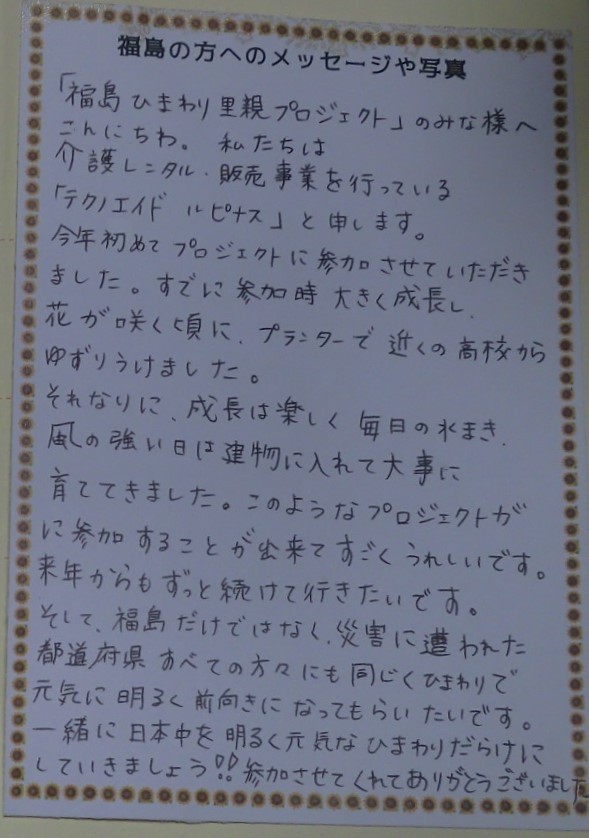 福島の方へのメッセージや写真
「福島ひまわり里親プロジェクト」のみな様へ
こんにちわ。 私たちは
介護レンタル・販売事業を行っている
「テクノエイド ルピナス」と申します。
今年初めてプロジェクトに参加させていただき
ました。すでに参加時 大きく成長し、
花が咲く頃に、プランターで 近くの高校から
ゆずりうけました。
それなりに、成長は楽しく 毎日の水まき、
風の強い日は建物に入れて大事に
育ててきました。このようなプロジェクトが
に参加することが出来てすごくうれしいです。
来年からもずっと続けて行きたいです。
そして、福島だけではなく、災害に遭われた
都道府県すべての方々にも同じくひまわりで
元気に明るく前向きになってもらいたいです。
一緒に日本中を明るく元気なひまわりだらけに
していきましょう!! 参加させてくれてありがとうございました